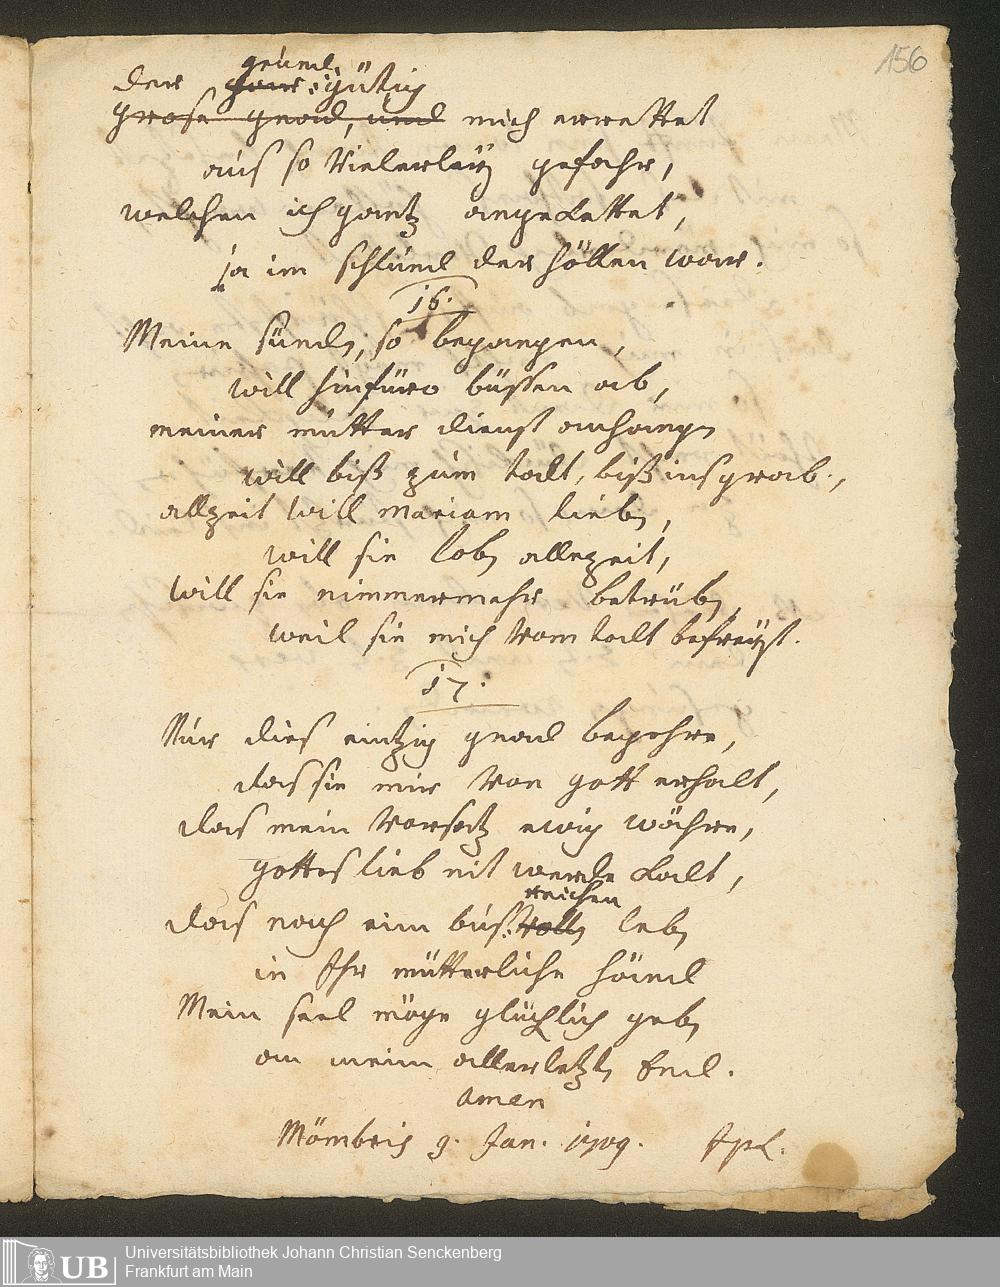 156
der grund gütig
grose gnad, und mich errettet
aus so vielerleÿ gefahr,
welchen ich gantz angekettet,
ja im schlund der höllen war.
16.
Meine sünden, so begangen,
will hinfüro büssen ab,
meiner mutter dienst anhangen
will biß zum todt, biß ins grab.,
allzeit will mariam lieben,
will sie loben allezeit,
will sie nimmermehr betrüben,
weil sie mich vom todt befreÿt.
17.
Nur dies eintzig gnad begehre,
das sie mir von gott erhalt,
das mein vorsatz ewig währe,
gottes lieb nit werde kalt,
das nach eim bus: vollen reichen leben
in Ihr mütterliche händ
Mein seel möge glücklich geben
an meim allerletzten End.
Amen
Mömbris 9. Jan. 1709.
Universitätsbibliothek Johann Christian Senckenberg
Frankfurt am Main
UB